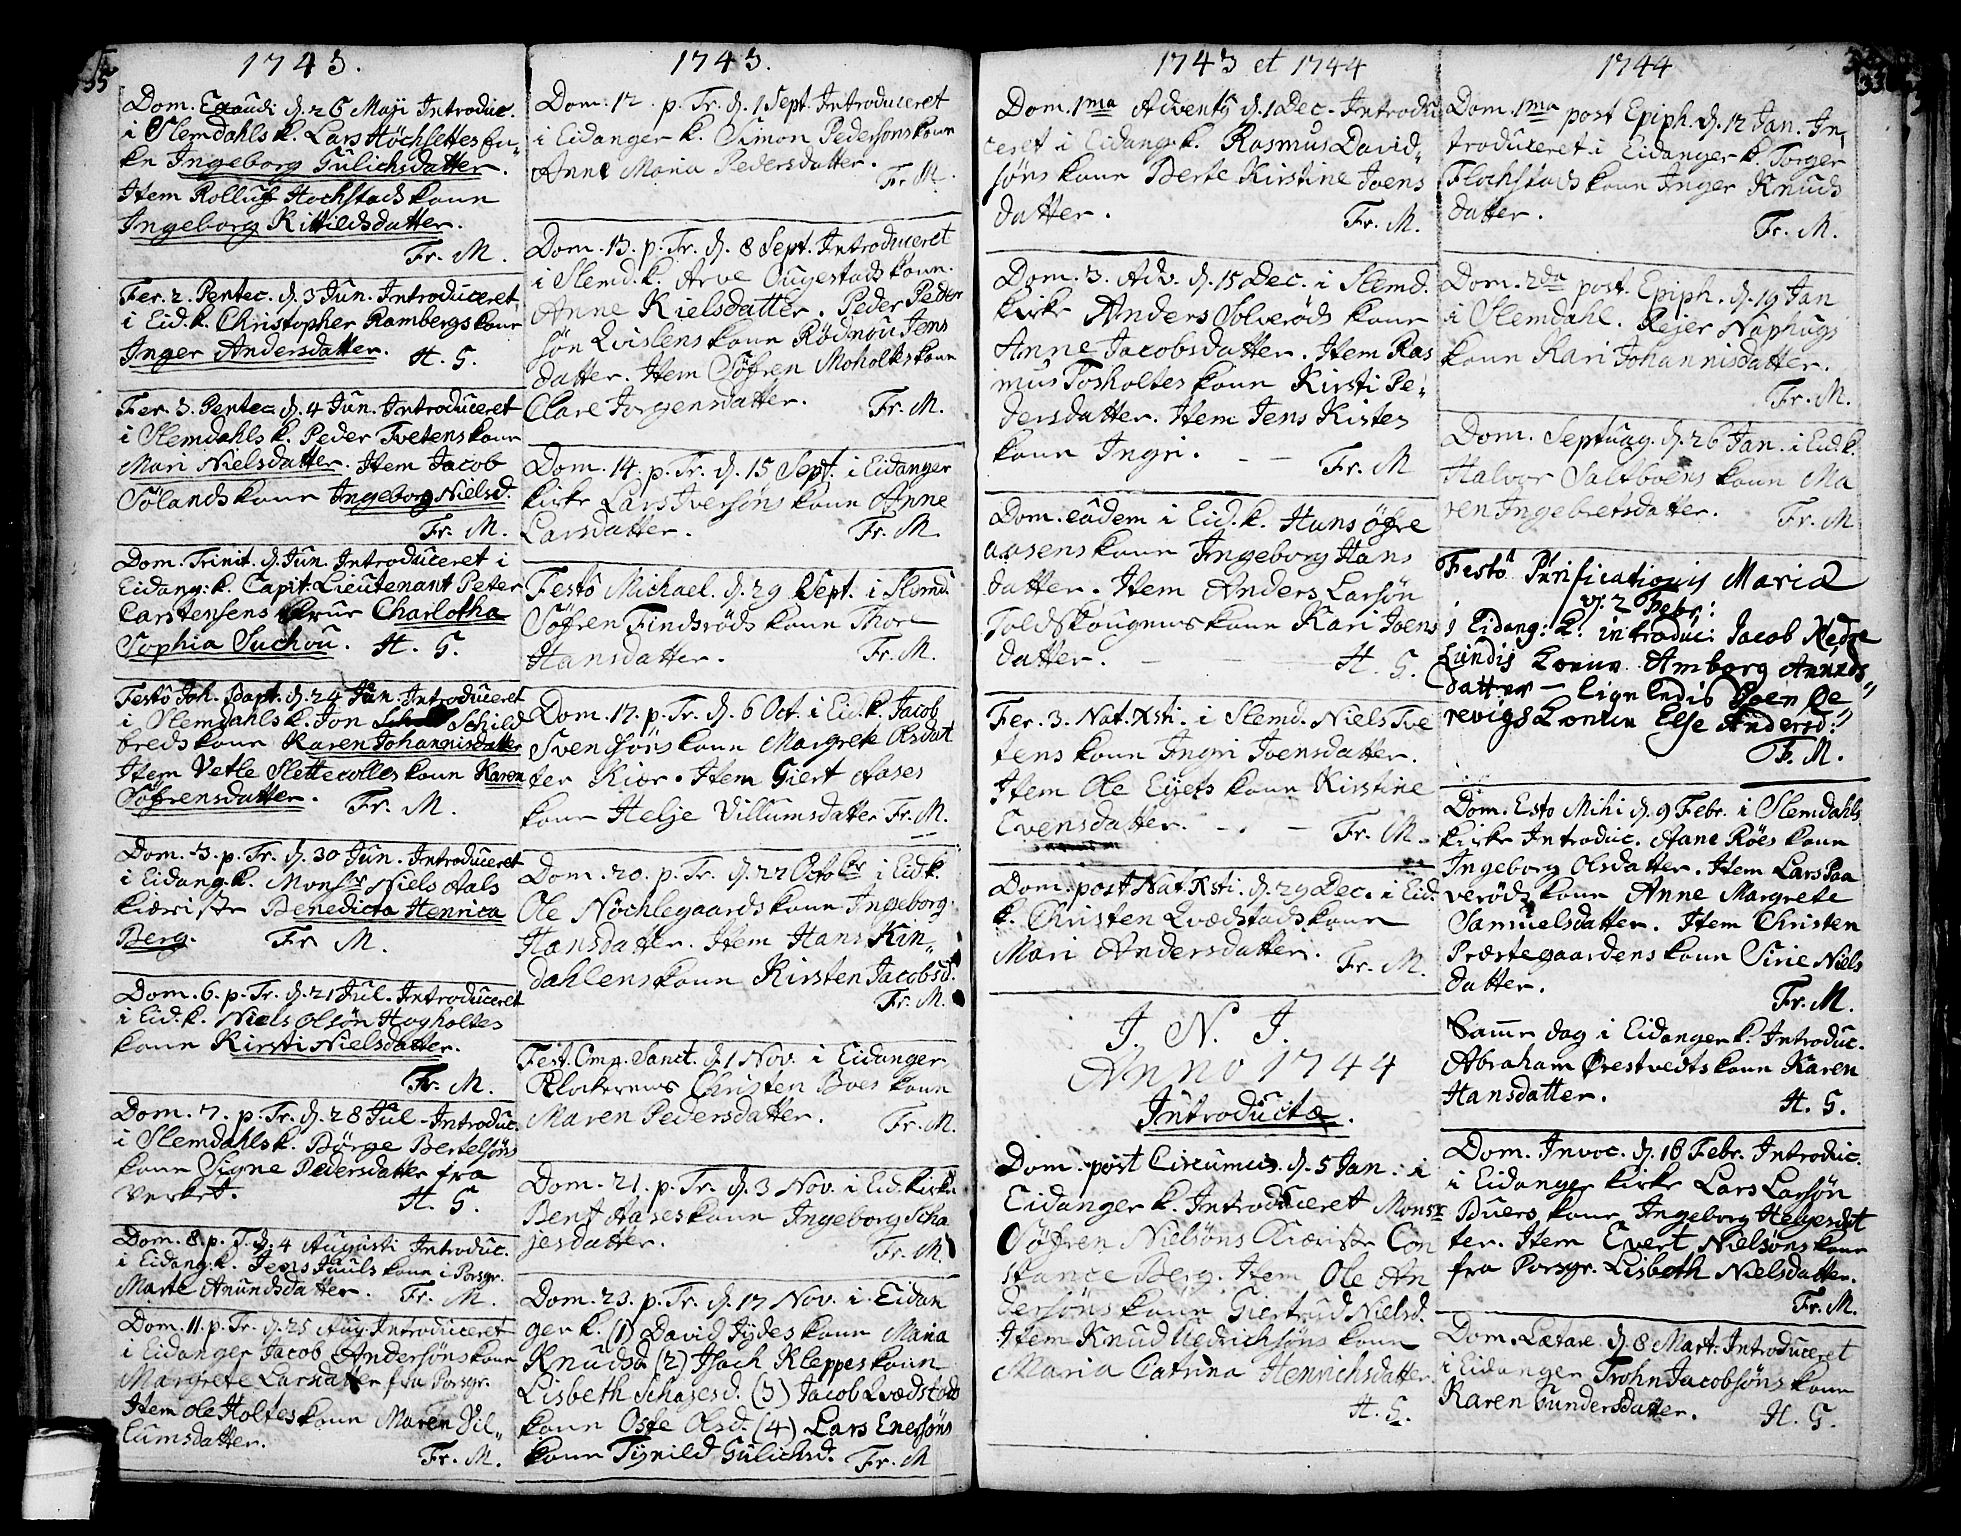 1743.
Dom. Exaudi d. 26 Maji Introduc.
i Slemdahls k. Lars Höchsettes Hu-
kn Ingeborg Gulichsdatter.
Item Rolluf Hochstads kone
Ingeborg Kittildsdatter.
Fr. M.
Fer. 2. Pentec. d. 3 Jun. Introduceret
i Eid. k. Christopher Rambergs kone
Inger Andersdatter. H. G.
Fer. 3. Pentec. d. 4 Jun. Introduceret
i Slemdahls k. Peder Tvetens kone
Mari Nielsdatter. Item Jacob
Sölands kone Ingeborg Nielsd.
Fr. M.
Dom. Trinit. d. Jun. Introduceret i
Eidang: k. Capit. Lieutenant Peter
Carstensens Frue Charlotha
Sophia Suchou. H. G.
Festo Joh. Bapt. d. 24 Jun. Introduceret
i Slemdahls k. Jon Schild
breds kone Karen Johannisdatter
Item Vetle Slettecolles kone Karen
Söfrensdatter. Fr. M.
Dom. 3. p. Tr. d. 30 Jun. Introduceret
i Eidang. k. Monsr Niels Aals
Kiæriste Benedicta Henrica
Berg. Fr. M.
Dom. 6. p. Tr. d. 21 Jul. Introduceret
i Eid. k. Niels Olsön Hogholtes
kone Kirsti Nielsdatter.
Fr. M.
Dom. 7. p. Tr. d. 28 Jul. Introduc.
i Slemdahls k. Börge Bertelsöns
kone Signe Pedersdatter fra
Verket. H. G.
Dom. 8. p. T. d. 4 Augusti Introduc.
i Eidang. k. Jens Juuls kone i Porsgr.
Marte Anundsdatter. Fr. M.
Dom. 11. p. Tr. d. 25 Aug. Introduceret
i Eidanger Jacob Andersöns kone
Margrete Larsdatter fra Porsgr.
Item Ole Holtes kone Maren Vil-
lumsdatter.
Fr. M.
1743.
Dom. 12. p. Tr. d. 1 Sept. Introduceret
i Eidanger k. Simon Pedersöns kone
Anne Maria Pedersdatter.
Fr. M.
Dom. 13. p. Tr. d. 8 Sept. Introduceret
i Slemd. k. Arve Ougestads kone.
Anne Kielsdatter. Peder Peder
sön Qvislens kone Rödnou Jens
datter. Item Söfren Moholtes kone
Clare Jorgensdatter. Fr. M.
Dom. 14. p. Tr. d. 15 Sept. i Eidanger
kirke Lars Iversöns kone Anne
Larsdatter. Fr. M.
Festo Michael. d. 29 Sept. i Slemd.
Söfren Findsröds kone Thore
Hansdatter. Fr. M.
Dom. 17. p. Tr. d. 6 Oct. i Eid. k. Jacob
Svendsöns kone Margrete Olsdat
ter Kiær. Item Giert Aases
kone Helje Villumsdatter Fr. M.
Dom. 20. p. Tr. d. 27 Octobr i Eid. k.
Ole Nöchlegaards kone Ingeborg
Hansdatter. Item Hans Kin-
dahlens kone Kirsten Jacobsd.
Fr. M.
Fest. Omn. Sanct. d. 1 Nov. i Eidanger
Klokerens Christen Boes kone
Maren Pedersdatter. Fr. M.
Dom. 21. p. Tr. d. 3 Nov. i Eid. kirke
Bent Aases kone Ingeborg Scha
jesdatter. Fr. M.
Dom. 23. p. Tr. d. 17 Nov. i Eidan
ger k. (1) David Jydes kone Maria
Knudsd (2) Isach Kleppes kone
Lisbeth Schajesd. (3) Jacob Qvædstads
kone Oste Olsd. (4) Lars Enersöns
kone Tjnild Gulichsd. Fr. M
1743 et 1744
Dom. 1ma Adventus d. 1 Dec. Introdu
ceret i Eidang. k. Rasmus David-
söns kone Berte Kirstine Joens
datter. Fr. M.
Dom. 3. Adv. d. 15 Dec. i Slemd.
kirke Anders Solveröds kone
Anne Jacobsdatter. Item Ras
mus Tosholtes kone Kirsti Pe-
dersdatter. Item Jens Kistes
kone Ingri. Fr. M
Dom. eâdem i Eid. k. Hans Öfre
aasens kone Ingeborg Hans
datter. Item Anders Larsön
Toldskougens kone Kari Joens
datter. H. G.
Fer. 3. Nat. Xsti. i Slemd. Niels Tve
tens kone Ingri Joensdatter.
Item Ole Eyets kone Kirstine
Evensdatter. Fr. M.
Dom. post Nat. Xsti. d. 29 Dec. i Eid.
k. Christen Qvædstads kone
Mari Andersdatter. Fr. M.
J. N. J.
Anno 1744
Introductæ.
Dom. post Circumcis. d. 5 Jan. i
Eidanger k. Introduceret Monsr
Söfren Nielsöns Kiæriste Con
stance Berg. Item Ole An
dersöns kone Giertrud Nielsd.
Item Knud Hedrichsöns kone
Maria Catrina Henrichsdatter.
H. G.
1744
Dom. 1ma post Epiph. d. 12 Jan. In-
troduceret i Eidanger k. Torger
Flochstads kone Inger Knuds
datter. Fr. M.
Dom. 2da post Epiph. d. 19 Jan
i Slemdahl. Rejer Naphugs
kone Kari Johannisdatter.
Fr. M.
Dom. Septuag. d. 26 Jan. i Eid. k.
Halvor Saltboens kone Ma
ren Ingebretsdatter. Fr. M
Festo Purificationis Mariæ
d. 2 Febr:
i Eidang: k. introduc: Jacob Nedre
Lundis konne Amborg Anneds-
datter — Ligeledis Joen Be
revigs konne Else Andersd:
F. M.
Dom. Esto Mihi d. 9 Febr. i Slemdahls
kirke Introduc. Aane Röes kone
Ingeborg Olsdatter. Item Lars Paa
veröds kone Anne Margrete
Samuelsdatter. Item Christen
Præstegaardens kone Sirie Niels
datter. Fr. M.
Samme dag i Eidanger k. Introduc.
Abraham Ørestvedts kone Karen
Hansdatter. H. G.
Dom. Invoc. d. 16 Febr. Introduc.
i Eidanger kirke Lars Larsön
Buers kone Ingeborg Helgesdat
ter. Item Evert Nielsöns kone
fra Porsgr. Lisbeth Nielsdatter.
Fr. M.
Dom. Lætare d. 8 Mart. Introduceret
i Eidanger Trohn Jacobsöns kone
Karen Gundersdatter. H. G.